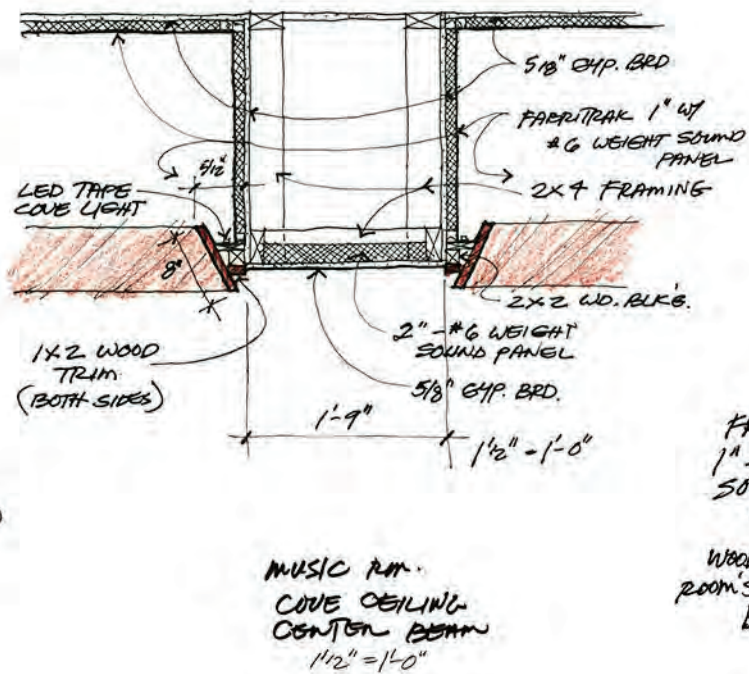 5/8" GYP. BRD
FABRITRAK 1" W/
#6 WEIGHT SOUND
PANEL
5 1/2"
2X4 FRAMING
LED TAPE
COVE LIGHT
8"
2X2 WD. BLK'G.
2" - #6 WEIGHT
SOUND PANEL
1X2 WOOD
TRIM
(BOTH SIDES)
5/8" GYP. BRD.
1'-9"
1 1/2" = 1'-0"
MUSIC RM.
COVE CEILING
CENTER BEAM
1 1/2" = 1'-0"
FA
1" -
SO
WOOD
ROOM'S